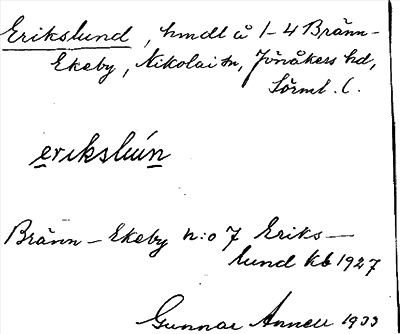 Erikslund, hmdl å 1-4 Bränn-
Ekeby, Nikolai sn, Jönåkers hd,
Sörml. l.
erikslún
Bränn-Ekeby n:o 7 Eriks-
lund kb 1927
Gunnar Annell 1933